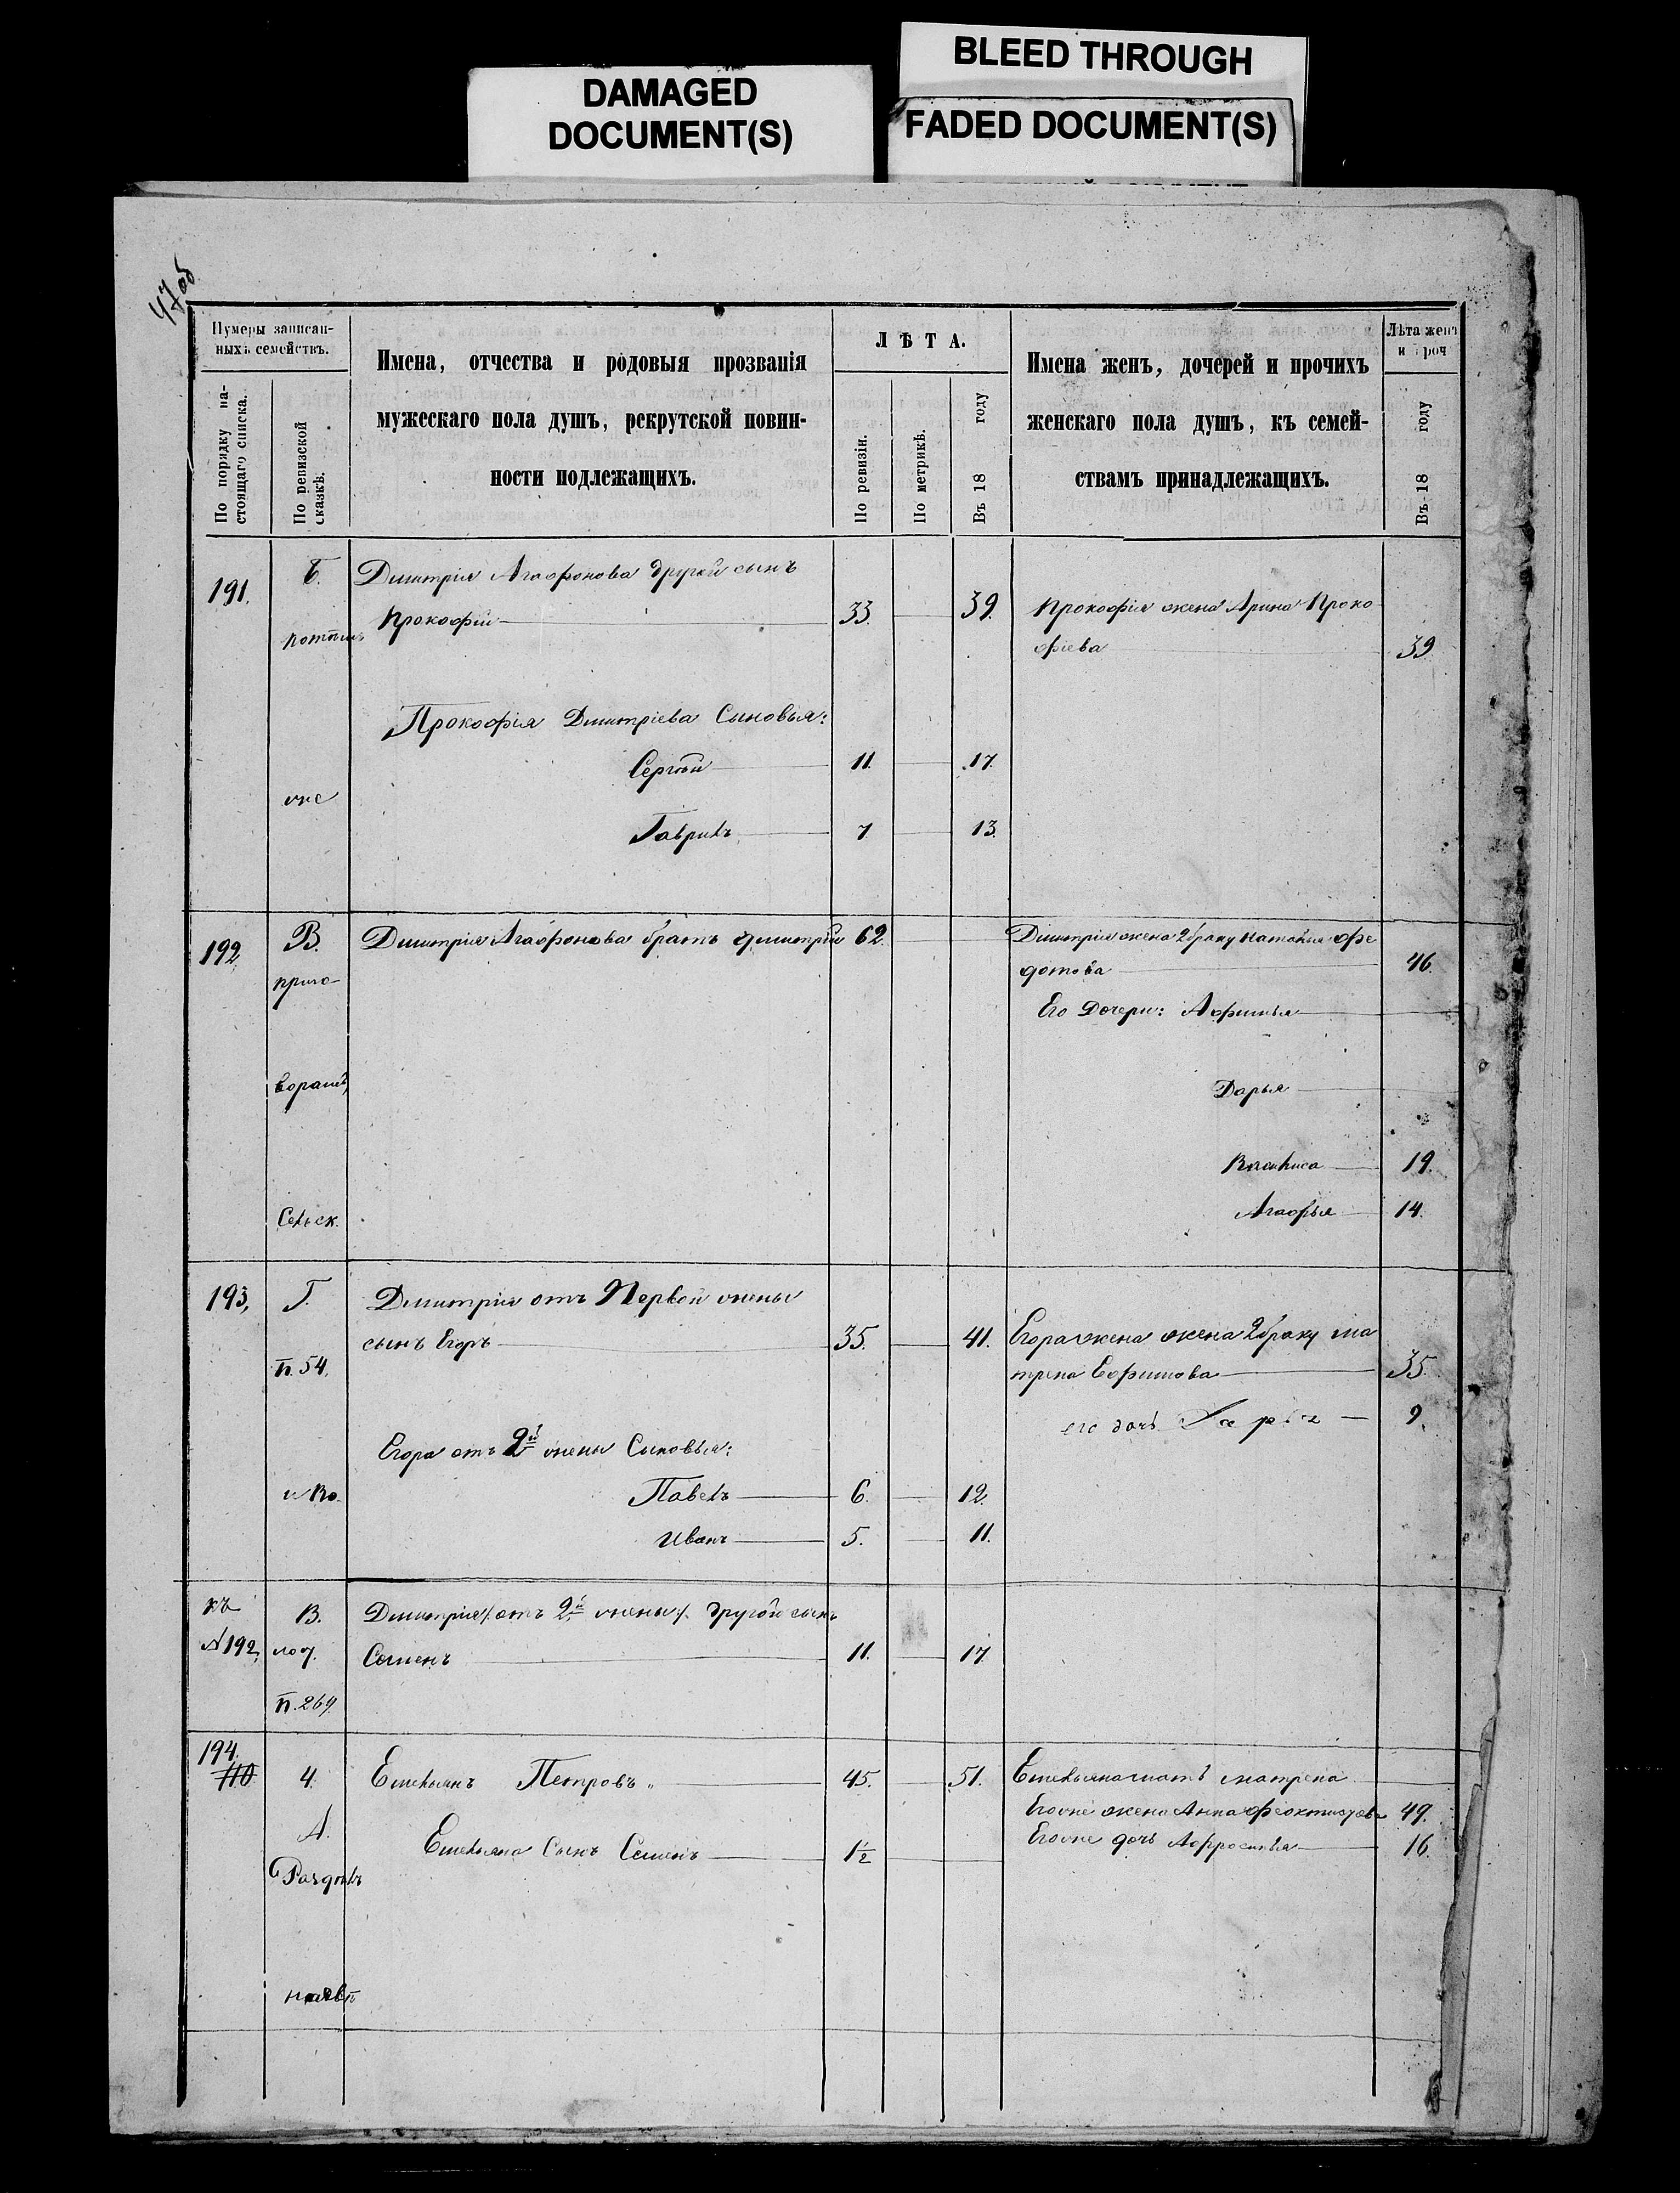 BLEED THROUGH
DAMAGED
DOCUMENT(S)
FADED DOCUMENT(S)
47 об
Нумеры записан-
ныхъ семействъ.
По порядку на-
стоящаго списка.
По ревизской
сказкѣ.
Имена, отчества и родовыя прозванія
мужескаго пола душъ, рекрутской повин-
ности подлежащихъ.
ЛѢТА.
По ревизіи.
По метрикѣ.
Въ 18 году
Имена женъ, дочерей и прочихъ
женскаго пола душъ, къ семей-
ствамъ принадлежащихъ.
Лѣта женъ
и проч
Въ 18 году
191. Б. Димитрія Агафонова другой сынъ
Прокофій 33. 39. Прокофія жена Арина Проко
фіева 39
Прокофія Димитріева Сыновья:
Сергѣй 11. 17.
же
Гаврилъ 7 13.
192 В. Димитрія Агафонова братъ Димитрій 62. Димитрія жена 2 браку Наталья Фе
дотова 46.
приго-
Его Дочери: Афимья
ворамъ
Дарья
Василиса 19.
Сельск. Агафья 14.
193, Г. Димитрія отъ Первой жены
сынъ Егоръ 35. 41. Егора жена жена 2 браку Ма
п. 54. трена Ефимова 35.
его дочь 9.
Егора отъ 2й жены Сыновья:
Павелъ 6. 12.
Иванъ 5. 11.
къ В. Димитрія /:отъ 2й жены:/ другой сынъ
№ 192, Семенъ 11. 17.
п. 264
194.
110 4. Емельянъ Петровъ 45. 51. Емельяна мать Матрена
Егоже жена Анна Феоктистова 49.
А. Емельяна Сынъ Семенъ 1½ Егоже дочь Афросинья 16.
Раздѣлъ